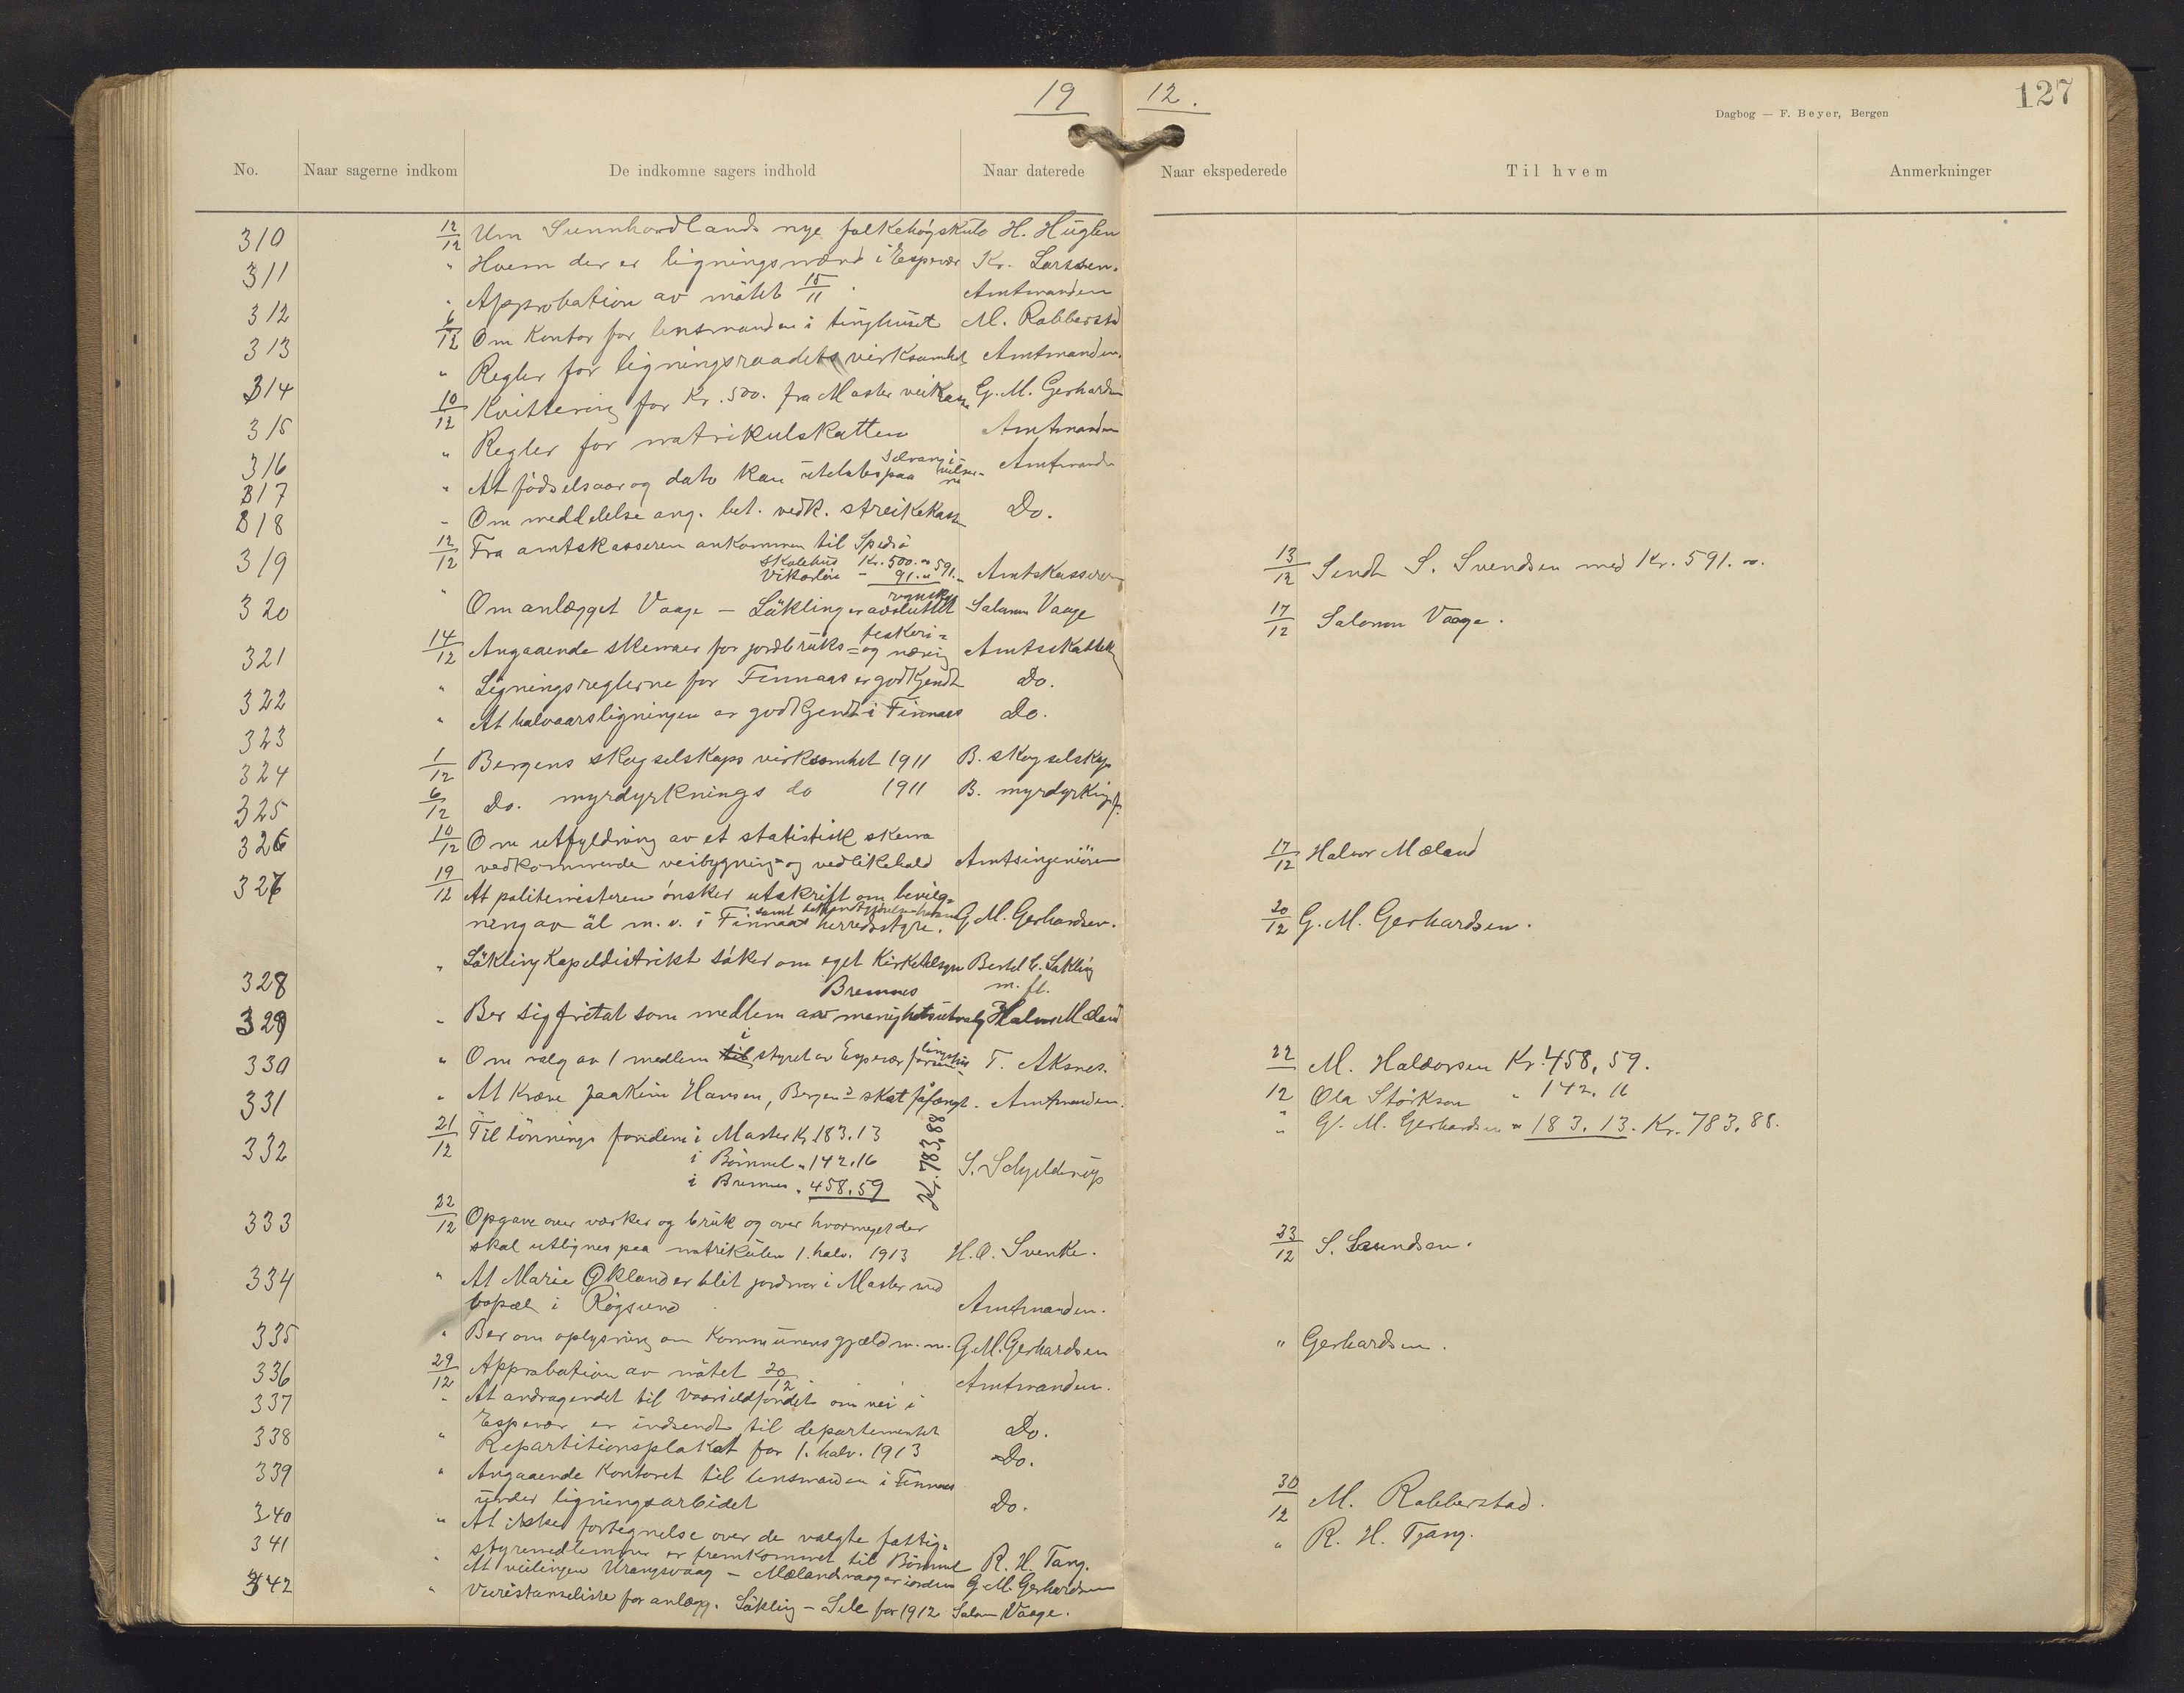 19 12.
127
Dagbog — F. Beyer, Bergen
No. Naar sagerne indkom De indkomne sagers indhold Naar daterede Naar ekspederede Til hvem Anmerkninger
310 12/12 Um Sunnhordlands nye folkehögskule H. Huglen
311 " Hvem der er ligningsmænd i Espevær Kr. Larssen.
312 " Approbation av mötet 15/11 Amtmanden
313 6/12 Om kontor for lensmanden i tinghuset M. Rabberstad
314 " Regler for ligningsraadets virksomhet Amtmanden.
315 10/12 Kvittering for Kr. 500. fra Moster veikasse G. M. Gerhardsen
316 " Regler for matrikulskatten Amtmanden
317 " At födselsaar og dato kan utelates paa Amtmanden
318 - Om meddelelse ang. bet. vedk. streikekasse Do.
319 12/12 Fra amtskasseren ankommen til Spedsö
skolehus Kr. 500. "
Vikarlön - 91. " 591.- Amtskasseren 13/12 Sendt S. Svendsen med Kr. 591. "
320 " Om anlægget Vaage - Läkling er avsluttet Salamon Vaage 17/12 Salomon Vaage.
321 14/12 Angaaende skemaer for jordbruks= fiskeri= og næring Amtsskattek
322 " Ligningsreglerne for Finnaas er godkjendt Do.
323 " At halvaarsligningen er godkjendt i Finnaas Do.
324 1/12 Bergens skogselskaps virksomhet 1911 B. skogselskap
325 6/12 Do. myrdyrknings do 1911 B. myrdyrkingsf.
326 10/12 Om utfyldning av et statistisk skema
vedkommende veibygning og vedlikehold Amtsingeniören 17/12 Halvor Mæland
327 19/12 At politimesteren önsker utskrift om bevilg=
ning av äl m. v. i Finnaas herredsstyre. G. M. Gerhardsen. 20/12 G. M. Gerhardsen.
328 " Läkling Kapeldistrikt söker om eget Kirketilsyn Bertel E. Läkling
m. fl.
Bremnes
329 " Ber sig fritat som medlem av menighetsutvalg Halvor Mæland
330 " Om valg av 1 medlem i styret av Espevær T. Aksnes. 22/12 M. Haldorsen Kr. 458,59.
331 " At kræve Joakim Hansen, Bergen skat Amtmanden. Ola Störksen " 142.16
" G. M. Gerhardsen " 183.13. Kr. 783.88.
332 21/12 Til lönnings fondene i Moster Kr. 183.13
i Bömmel " 142.16
i Bremnes " 458.59 Kr. 783,88 S. Schjelderup
333 22/12 Opgave over værker og bruk og over hvormeget der
skal utlignes paa matrikulen 1. halv. 1913 H. O. Svenke. 23/12 S. Svendsen.
334 " At Marie Økland er blit jordmor i Moster med
bopæl i Røgsund Amtmanden.
335 " Ber om oplysning om Kommunens gjæld m. m. G. M. Gerhardsen " Gerhardsen.
336 29/12 Approbation av mötet 20/12. Amtmanden.
337 " At andragendet til Vaarsildfondet om vei i
Espevær er indsendt til departementet Do.
338 " Repartitionsplakat for 1. halv. 1913 Do.
339 " Angaaende kontoret til lensmanden i Finnaas
under ligningsarbeidet Do. 30/12 M. Rabberstad.
340 " At ikke fortegnelse over de valgte fattig=
styremedlemmer er fremkommet til Bömmel R. H. Tang. " R. H. Tjang.
341 " At veilinjen Vrangsvaag - Mælandsvaag er iorden G. M. Gerhardsen
342 " Veirestanseliste for anlægg. Läkling - Sele for 1912 Salam Vaage.